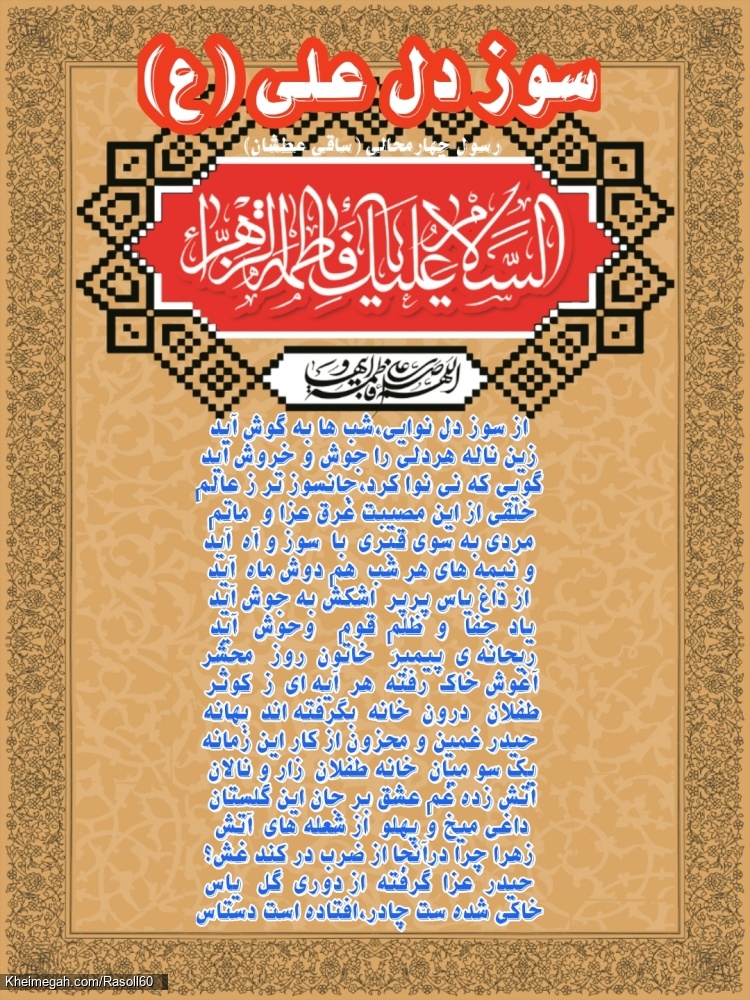 سوز دل علی (ع)
رسول چهارمحالی (ساقی عطشان)
السلام علیک یا فاطمة الزهراء
اللهم صل علی فاطمة و ابیها و
از سوز دل نوایی،شب ها به گوش آید
زین ناله هردلی را جوش و خروش آید
گویی که نی نوا کرد،جانسوز تر ز عالم
خلقی از این مصیبت غرق عزا و ماتم
مردی به سوی قبری با سوز و آه آید
و نیمه های هر شب هم دوش ماه آید
از داغ یاس پرپر اشکش به جوش آید
یاد جفا و ظلم قوم وحوش آید
ریحانه ی پیمبر خاتون روز محشر
آغوش خاک رفته هر آیه ای ز کوثر
طفلان درون خانه بگرفته اند بهانه
حیدر غمین و محزون از کار این زمانه
یک سو میان خانه طفلان زار و نالان
آتش زده غم عشق بر جان این گلستان
داغی میخ و پهلو از شعله های آتش
زهرا چرا درآنجا از ضرب در کند غش؟
حیدر عزا گرفته از دوری گل یاس
خاکی شده ست چادر،افتاده است دستاس
Kheimegah.com/Rasoll60